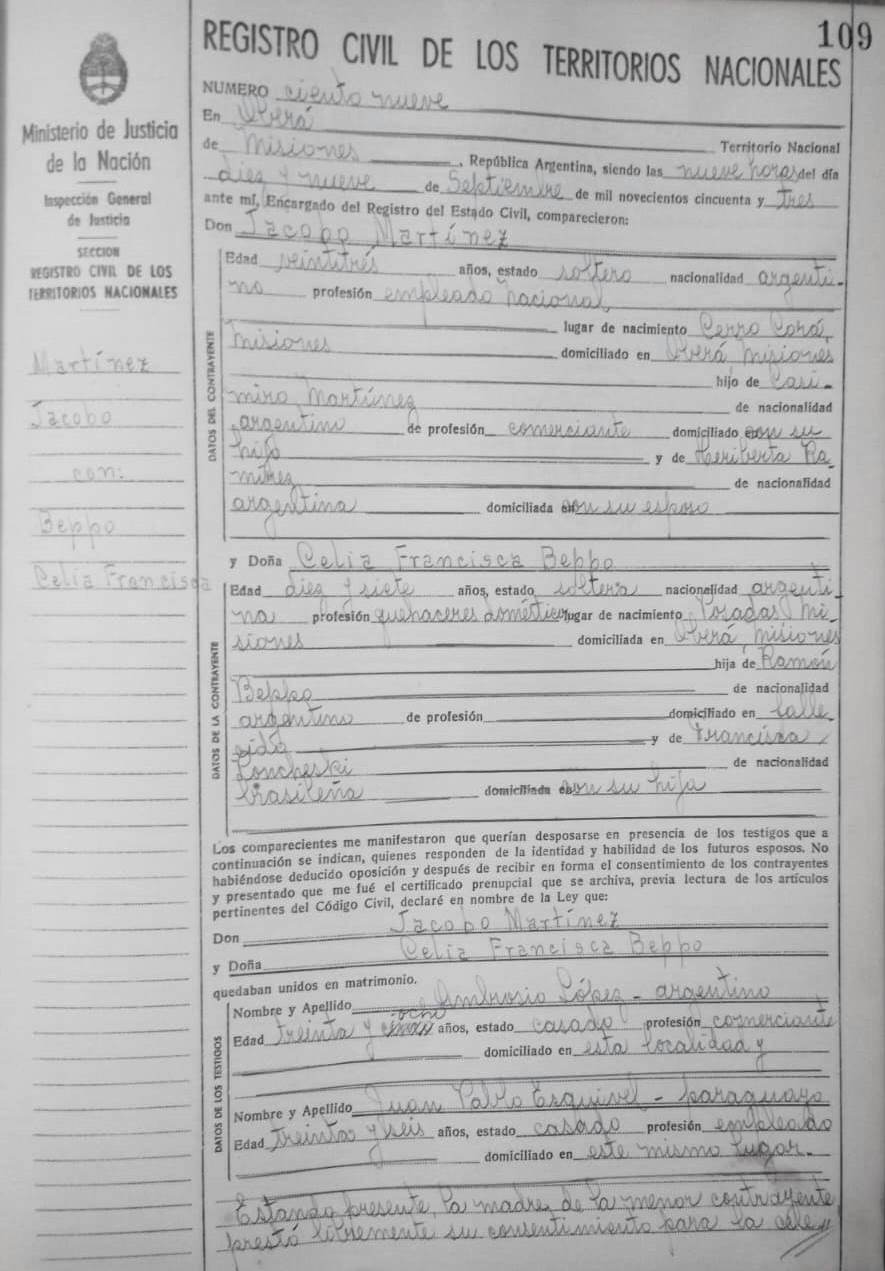 109
REGISTRO CIVIL DE LOS TERRITORIOS NACIONALES
Ministerio de Justicia
de la Nación
Inspección General
de Justicia
SECCION
REGISTRO CIVIL DE LOS
TERRITORIOS NACIONALES
Martínez
Jacobo
con:
Beppo
Celia Francisca
NUMERO ciento nueve
En Oberá
Territorio Nacional
de Misiones, República Argentina, siendo las nueve horas del día
diez y nueve de Septiembre de mil novecientos cincuenta y tres
ante mí, Encargado del Registro del Estado Civil, comparecieron:
Don Jacobo Martínez
DATOS DEL CONTRAYENTE
Edad veintitrés años, estado soltero nacionalidad argenti-
no profesión empleado nacional,
lugar de nacimiento Cerro Corá,
misiones domiciliado en Oberá misiones
hijo de Casi-
miro Martínez de nacionalidad
argentino de profesión comerciante domiciliado con su
hijo y de Heriberta Ra-
mirez de nacionalidad
argentina domiciliada con su esposo
y Doña Celia Francisca Beppo
DATOS DE LA CONTRAYENTE
Edad diez y siete años, estado soltera nacionalidad argenti-
na profesión quehaceres domésticos lugar de nacimiento Posadas Mi-
siones domiciliada en Oberá, misiones
hija de Ramón
Beppo de nacionalidad
argentino de profesión domiciliado en falle-
cido y de Francisca
Loncheski de nacionalidad
brasileña domiciliada con su hija
Los comparecientes me manifestaron que querían desposarse en presencia de los testigos que a
continuación se indican, quienes responden de la identidad y habilidad de los futuros esposos. No
habiéndose deducido oposición y después de recibir en forma el consentimiento de los contrayentes
y presentado que me fué el certificado prenupcial que se archiva, previa lectura de los artículos
pertinentes del Código Civil, declaré en nombre de la Ley que:
Don Jacobo Martínez
y Doña Celia Francisca Beppo
quedaban unidos en matrimonio.
DATOS DE LOS TESTIGOS
Nombre y Apellido Ambrosio López - argentino
Edad treinta y ocho años, estado casado profesión comerciante
domiciliado en esta localidad y
Nombre y Apellido Juan Pablo Esquivel - paraguayo
Edad treinta y seis años, estado casado profesión empleado
domiciliado en este mismo lugar.-
Estando presente, la madre, de la menor contrayente
prestó libremente su consentimiento para la cele